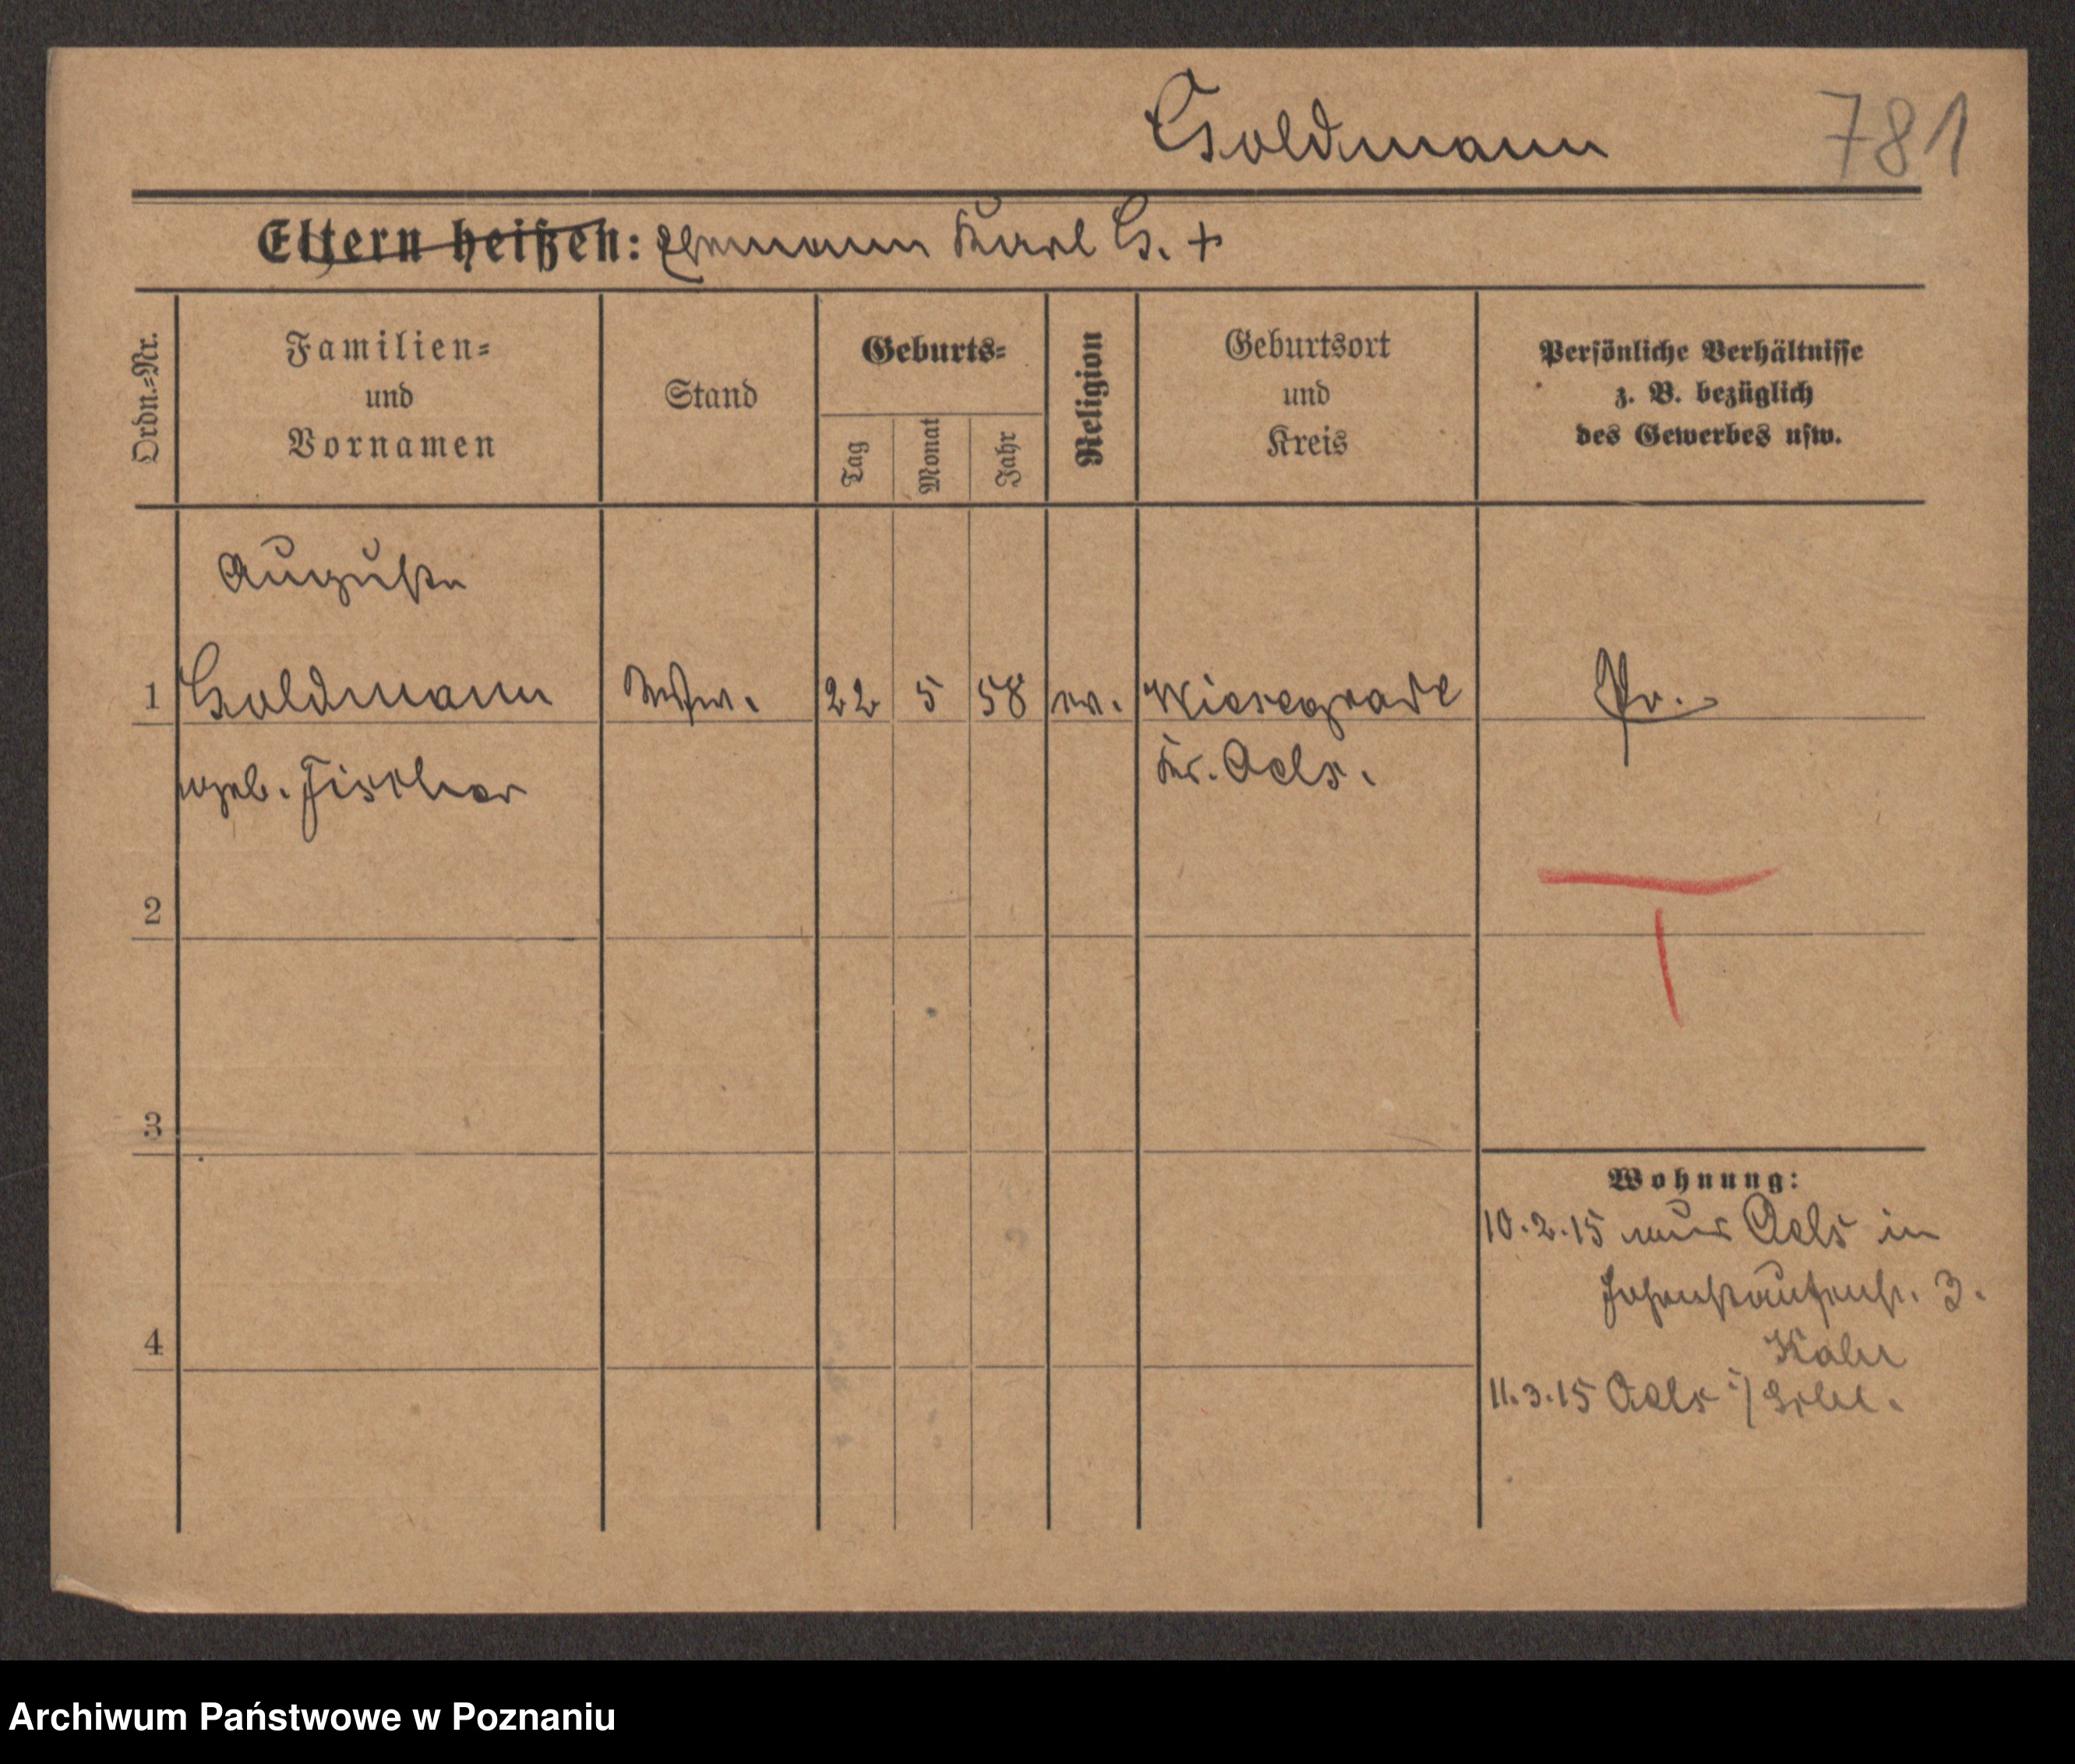 Goldmann
781
Eltern heißen: Ehemann Karl G. +
Ordn.-Nr.
Familien-
und
Vornamen
Stand
Geburts-
Tag
Monat
Jahr
Religion
Geburtsort
und
Kreis
Persönliche Verhältnisse
z. B. bezüglich
des Gewerbes usw.
Auguste
1 Goldmann Wtw. 22 5 58 ev. Wiesegrade Pr.
geb. Fischer Kr. Oels.
2
3
4
Wohnung:
10.2.15 aus Oels in
Hohenstaufenstr. 3.
11.3.15 Oels i/Schl.
Archiwum Państwowe w Poznaniu